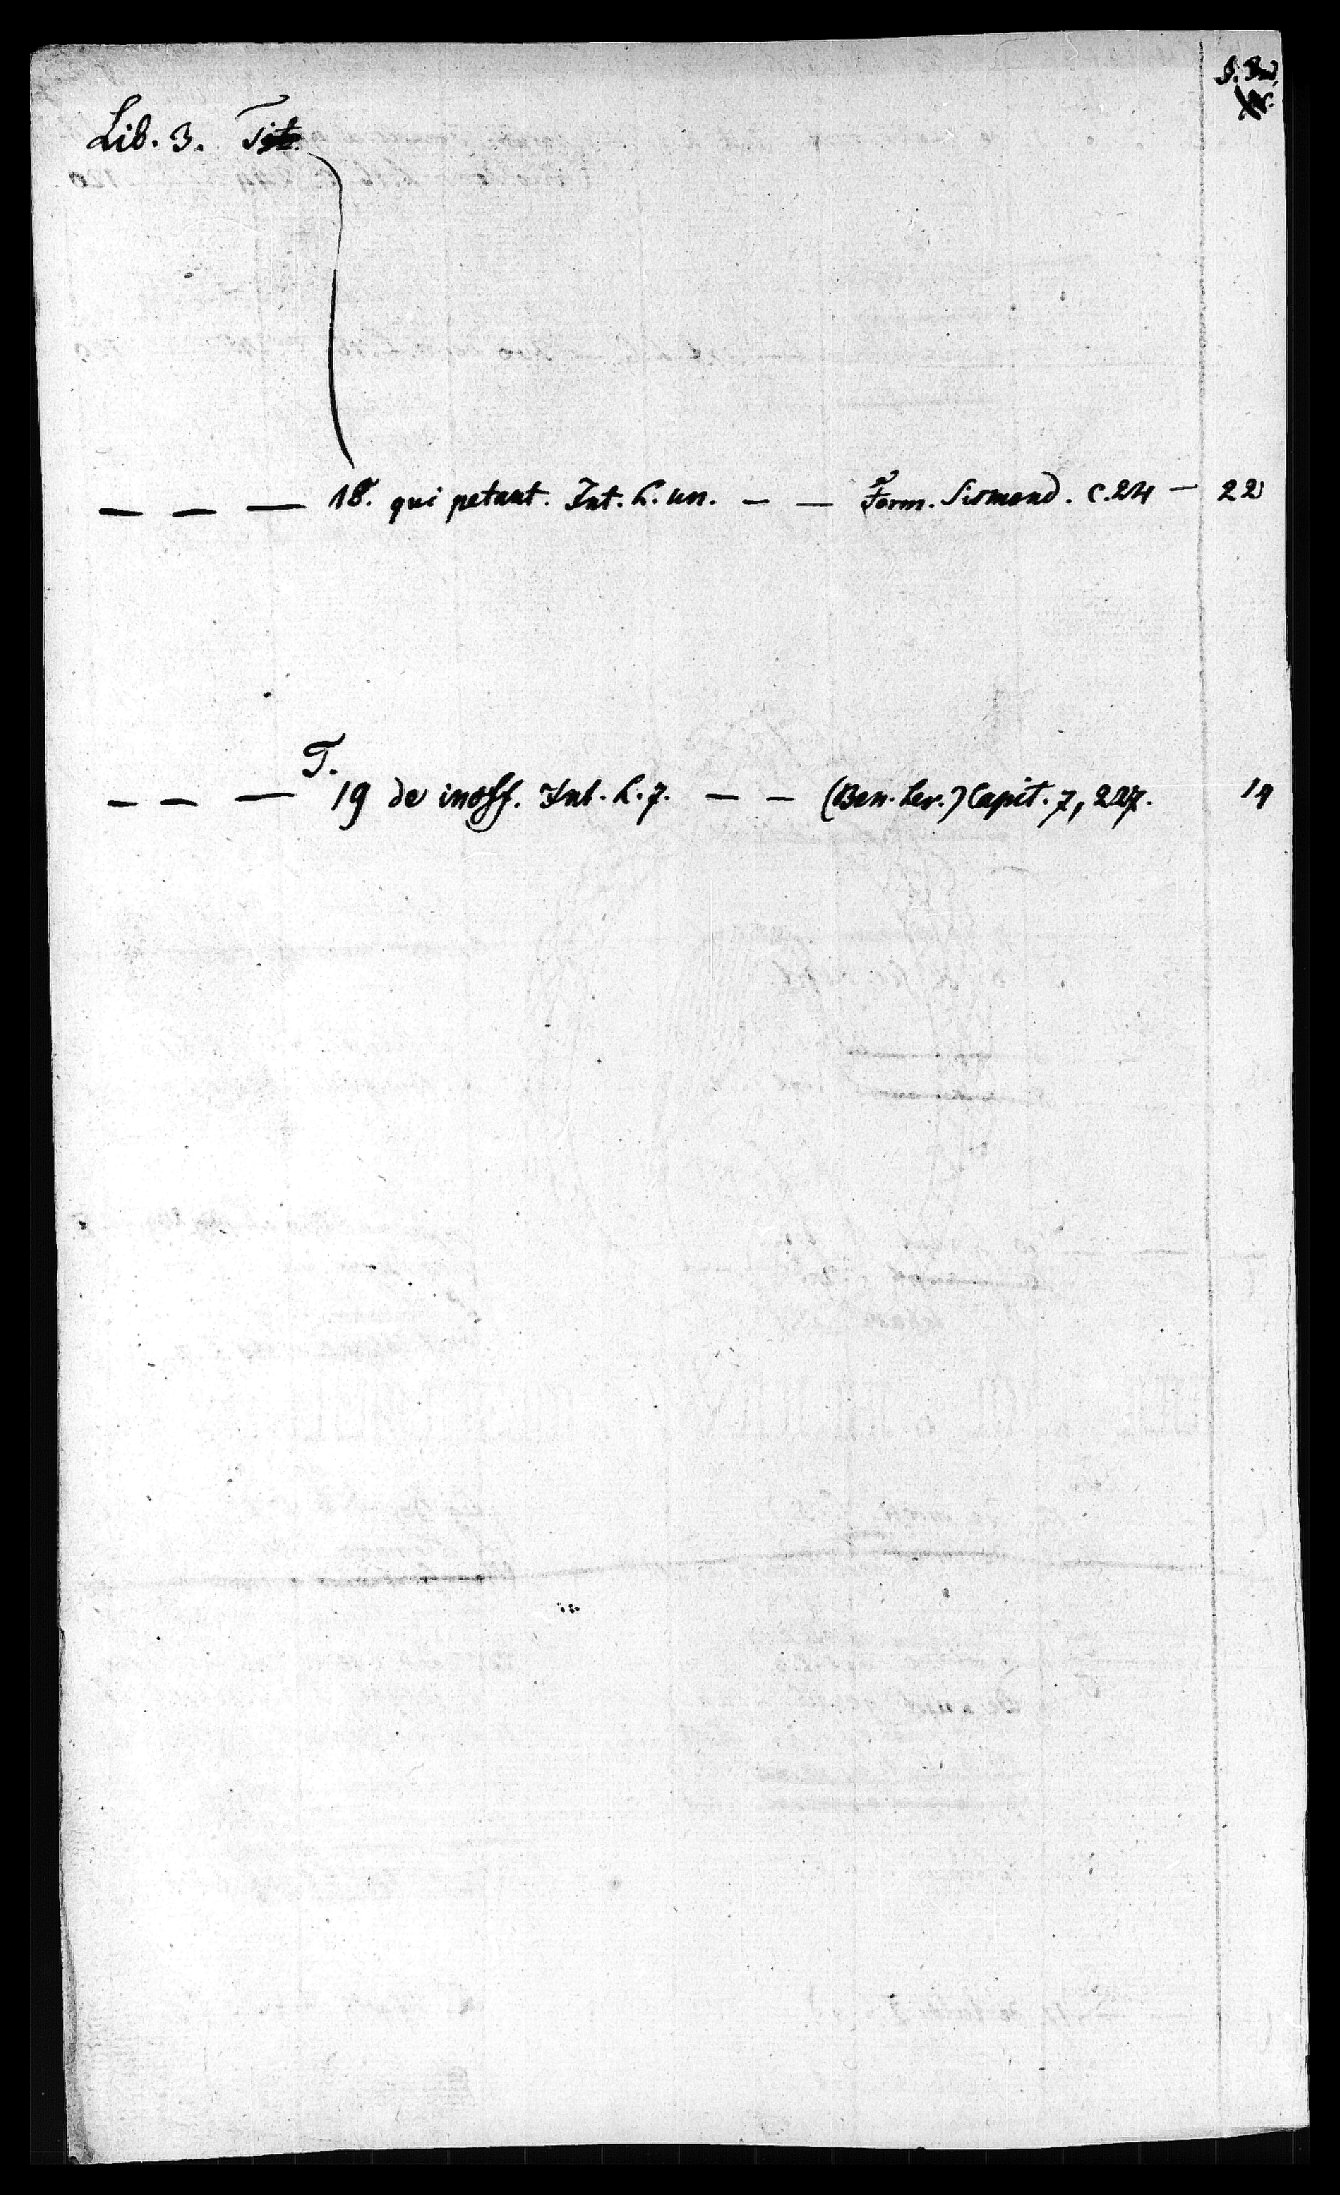 Lib. 3. Tit.
— — — 18. qui petant. Int. L. un. — — Form. Sirmond. c. 24 — 22
T.
— — — 19 de inoff. Int. L. 7. — — (Ben. Lev.) Capit. 7, 227. 19